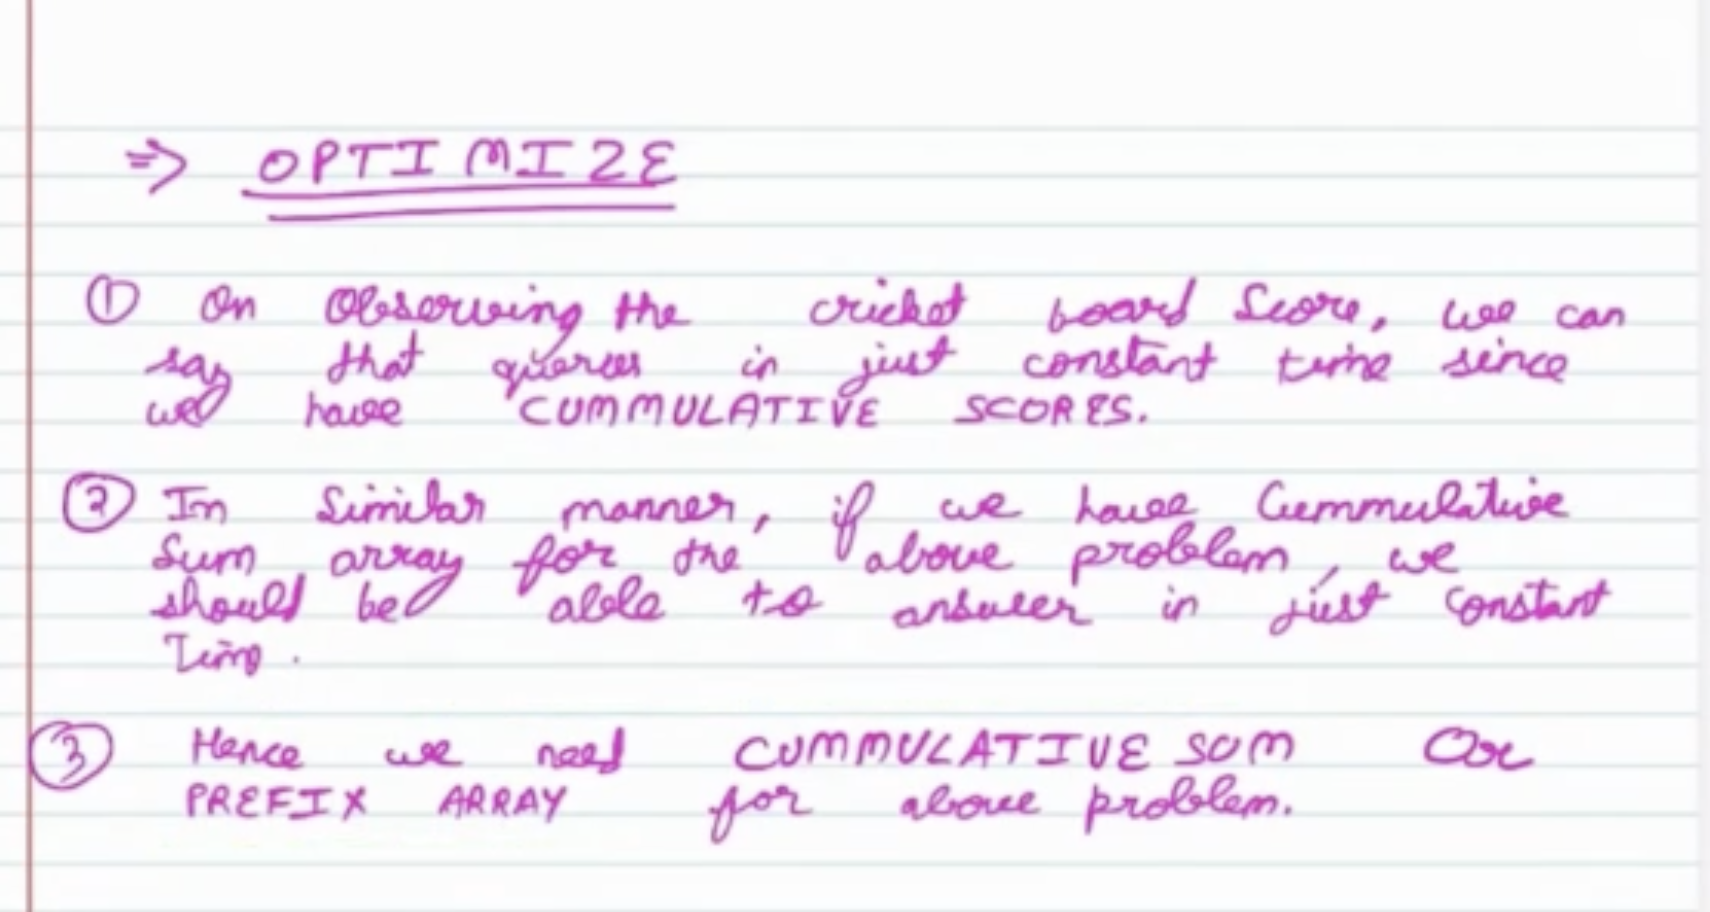 => OPTIMIZE
① On Observing the cricket board Score, we can
say that queries in just constant time since
we have CUMMULATIVE SCORES.
② In Similar manner, if we have Cummulative
Sum array for the above problem, we
should be able to answer in just constant
Time.
③ Hence we need CUMMULATIVE SUM Or
PREFIX ARRAY for above problem.